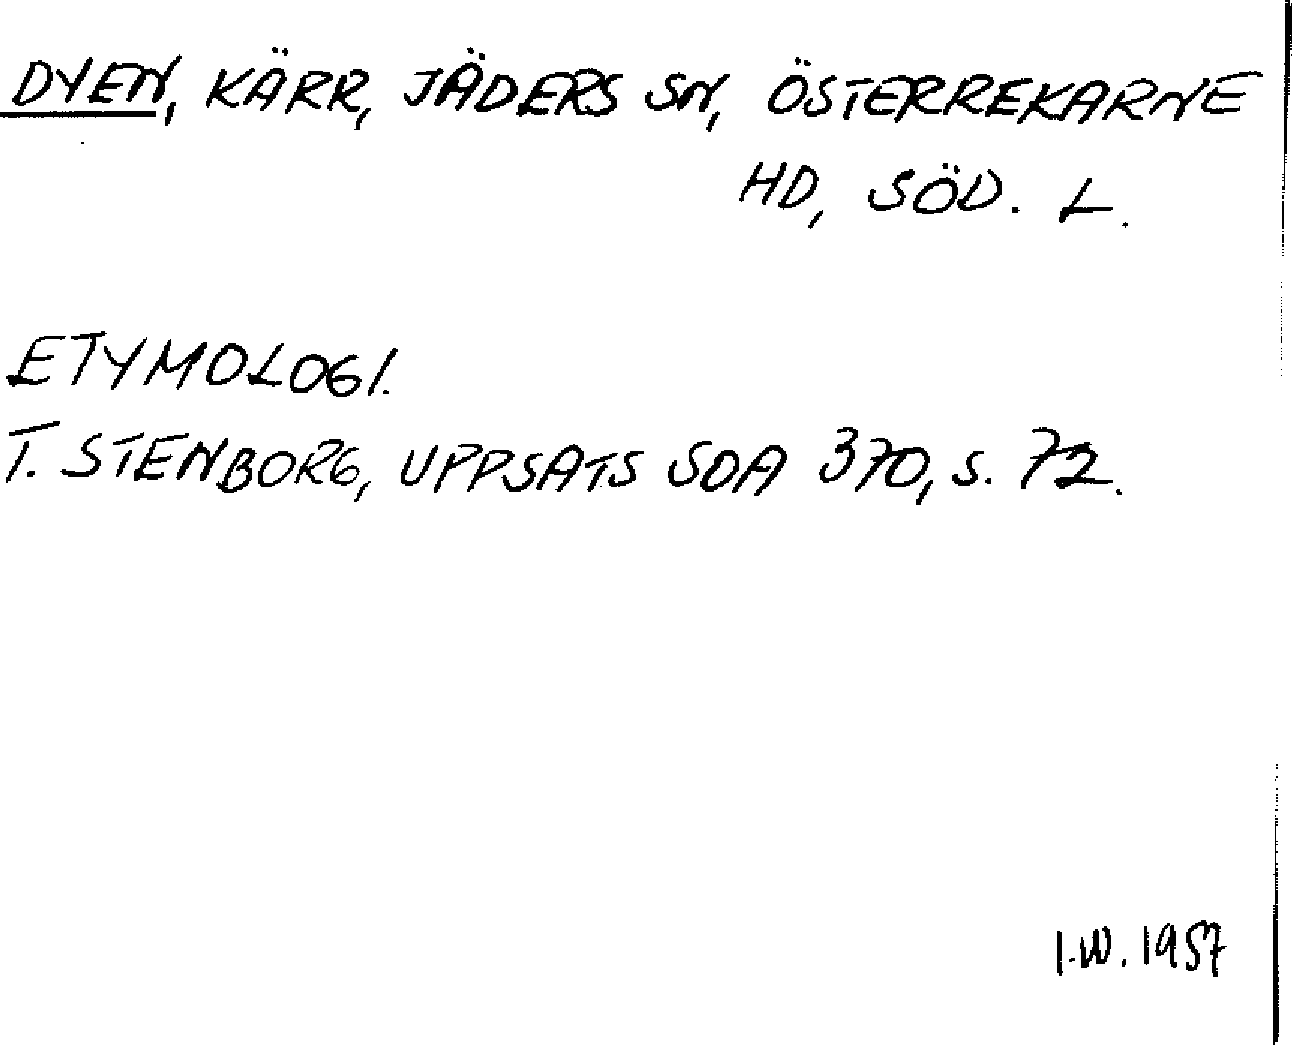 DYEN, KÄRR, JÄDERS SN, ÖSTERREKARNE
HD, SÖD. L.
ETYMOLOGI.
T. STENBORG, UPPSATS SOA 370, S. 72.
I.W. 1957